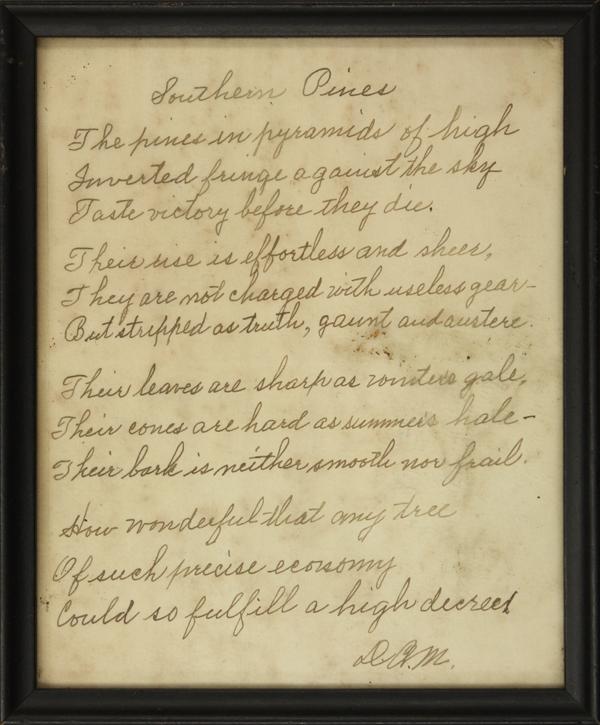 Southern Pines
The pines in pyramids of high
Inverted fringe against the sky
Taste victory before they die.
Their use is effortless and sheer,
They are not charged with useless gear-
But stripped as truth, gaunt and austere.
Their leaves are sharp as winters gale,
Their cones are hard as summers hale-
Their bark is neither smooth nor frail.
How wonderful that any tree
Of such precise economy
Could so fulfill a high decree!